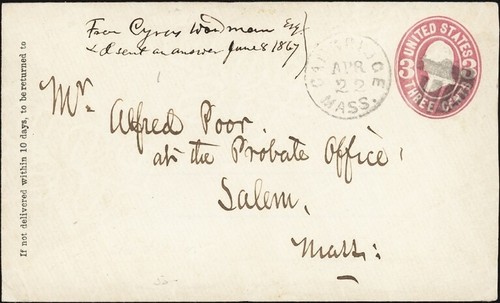 From Cyrus Woodman Esq.
& I sent an answer June 8 1867
CAMBRIDGE
APR
22
MASS.
UNITED STATES
3 3
THREE CENTS
Mr. Alfred Poor.
at the Probate Office,
Salem,
Mass:
If not delivered within 10 days, to be returned to